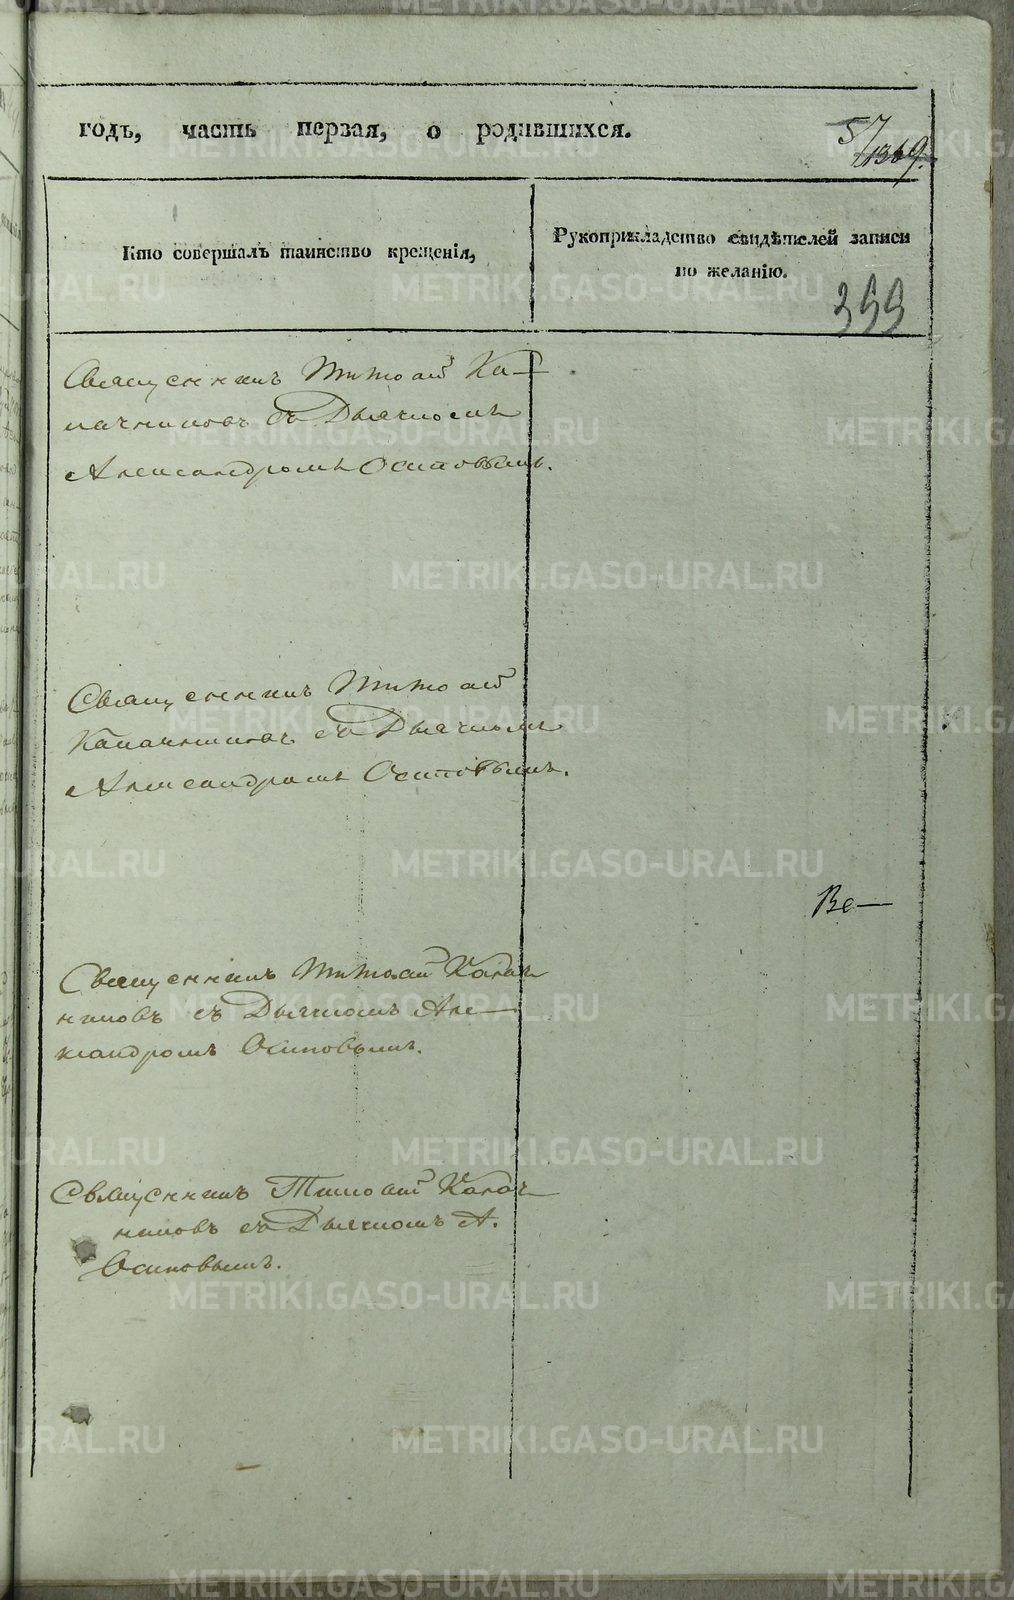 годъ, часть первая, о родившихся.
57
1369.
Кто совершалъ таинство крещенія,
Рукоприкладство свидѣтелей записи
по желанію.
399
Священникъ Тимоѳей Ка-
лачниковъ съ Дьячкомъ
Александромъ Осиповымъ.
Священникъ Тимоѳей
Калачниковъ съ Дьячкомъ
Александромъ Осиповымъ.
Ве—
Священникъ Тимоѳей Калач
никовъ съ Дьячкомъ Але—
ксандромъ Осиповымъ.
Священникъ Тимоѳей Калач
никовъ съ Дьячкомъ А.
Осиповымъ.
METRIKI.GASO-URAL.RU